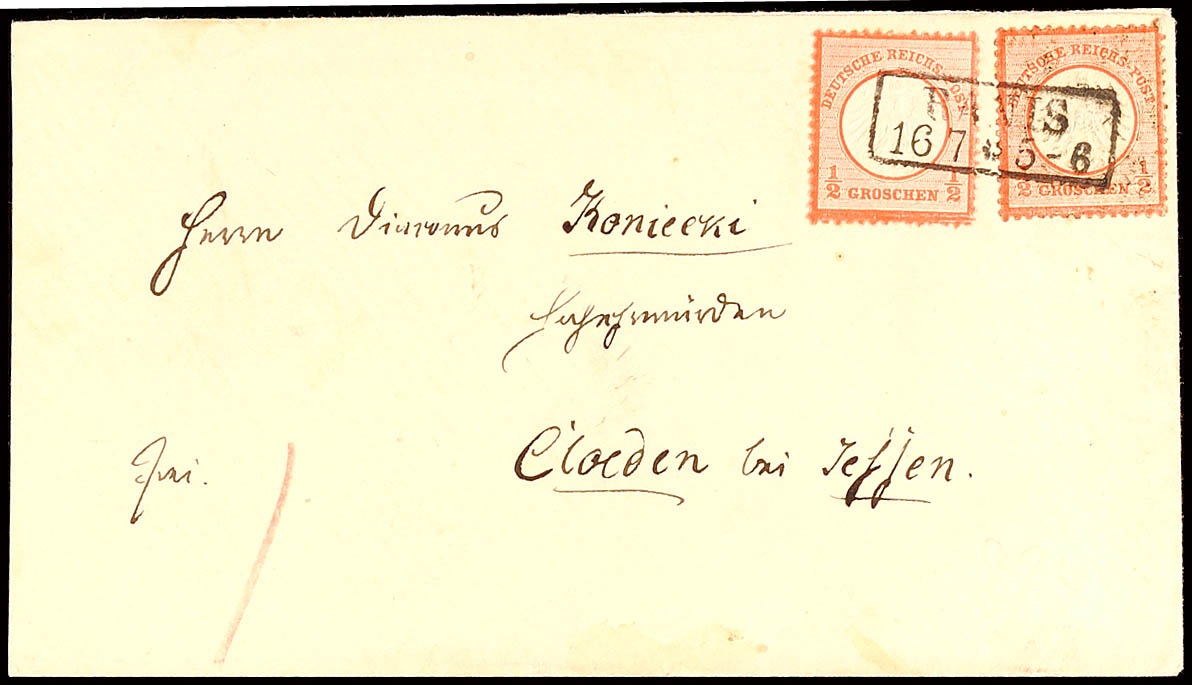 DEUTSCHE REICHS-POST
1/2 GROSCHEN 1/2
DEUTSCHE REICHS-POST
1/2 GROSCHEN 1/2
RANIS
16 7 5-6
Herrn Diaconus Koniecki
Hochehrwürden
Cloeden bei Jessen.
Frei.